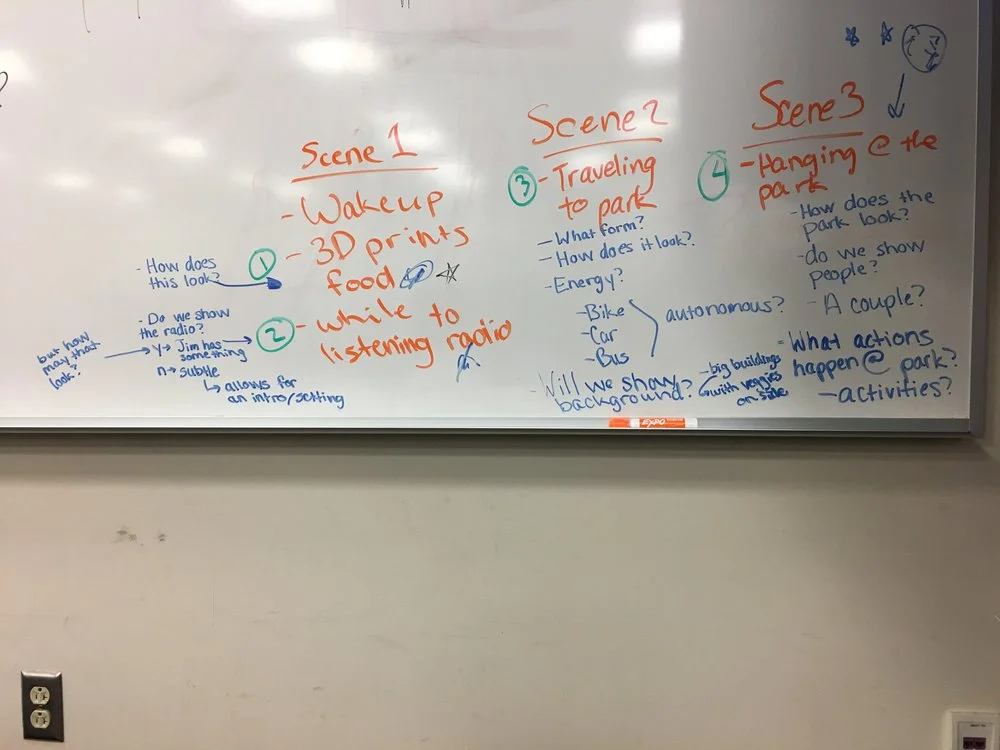 Scene 1
- Wakeup
1 - 3D prints
food
2 - while to
listening radio
- How does
this look?
- Do we show
the radio?
y→ Jim has
something
n→ subtle
↳ allows for
an intro/setting
but how
may that
look?
Scene 2
3 - Traveling
to park
- What form?
- How does it look?
- Energy?
- Bike
- Car
- Bus
autonomous?
- Will we show
background?
- big buildings
with veggies
on side
Scene 3
4 - Hanging @ the
park
- How does the
park look?
- do we show
people?
- A couple?
- What actions
happen @ park?
- activities?
EXPO